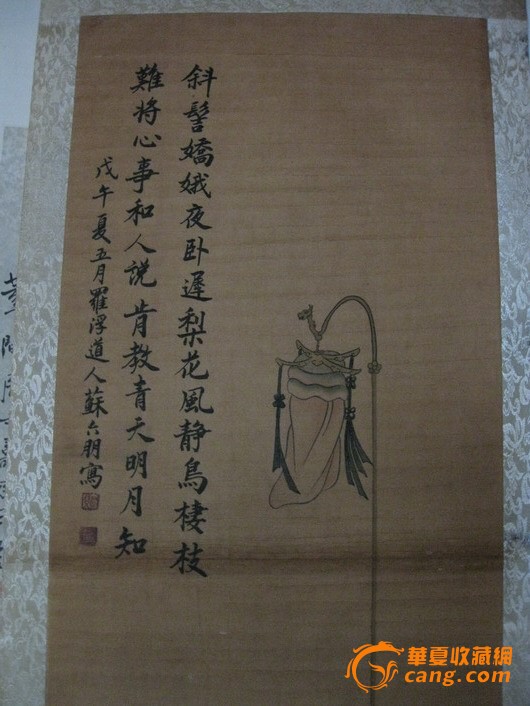 斜髻嬌娥夜卧遲梨花風静鳥棲枝
難將心事和人說肯教青天明月知
戊午夏五月羅浮道人蘇六朋寫
華夏收藏網
cang.com